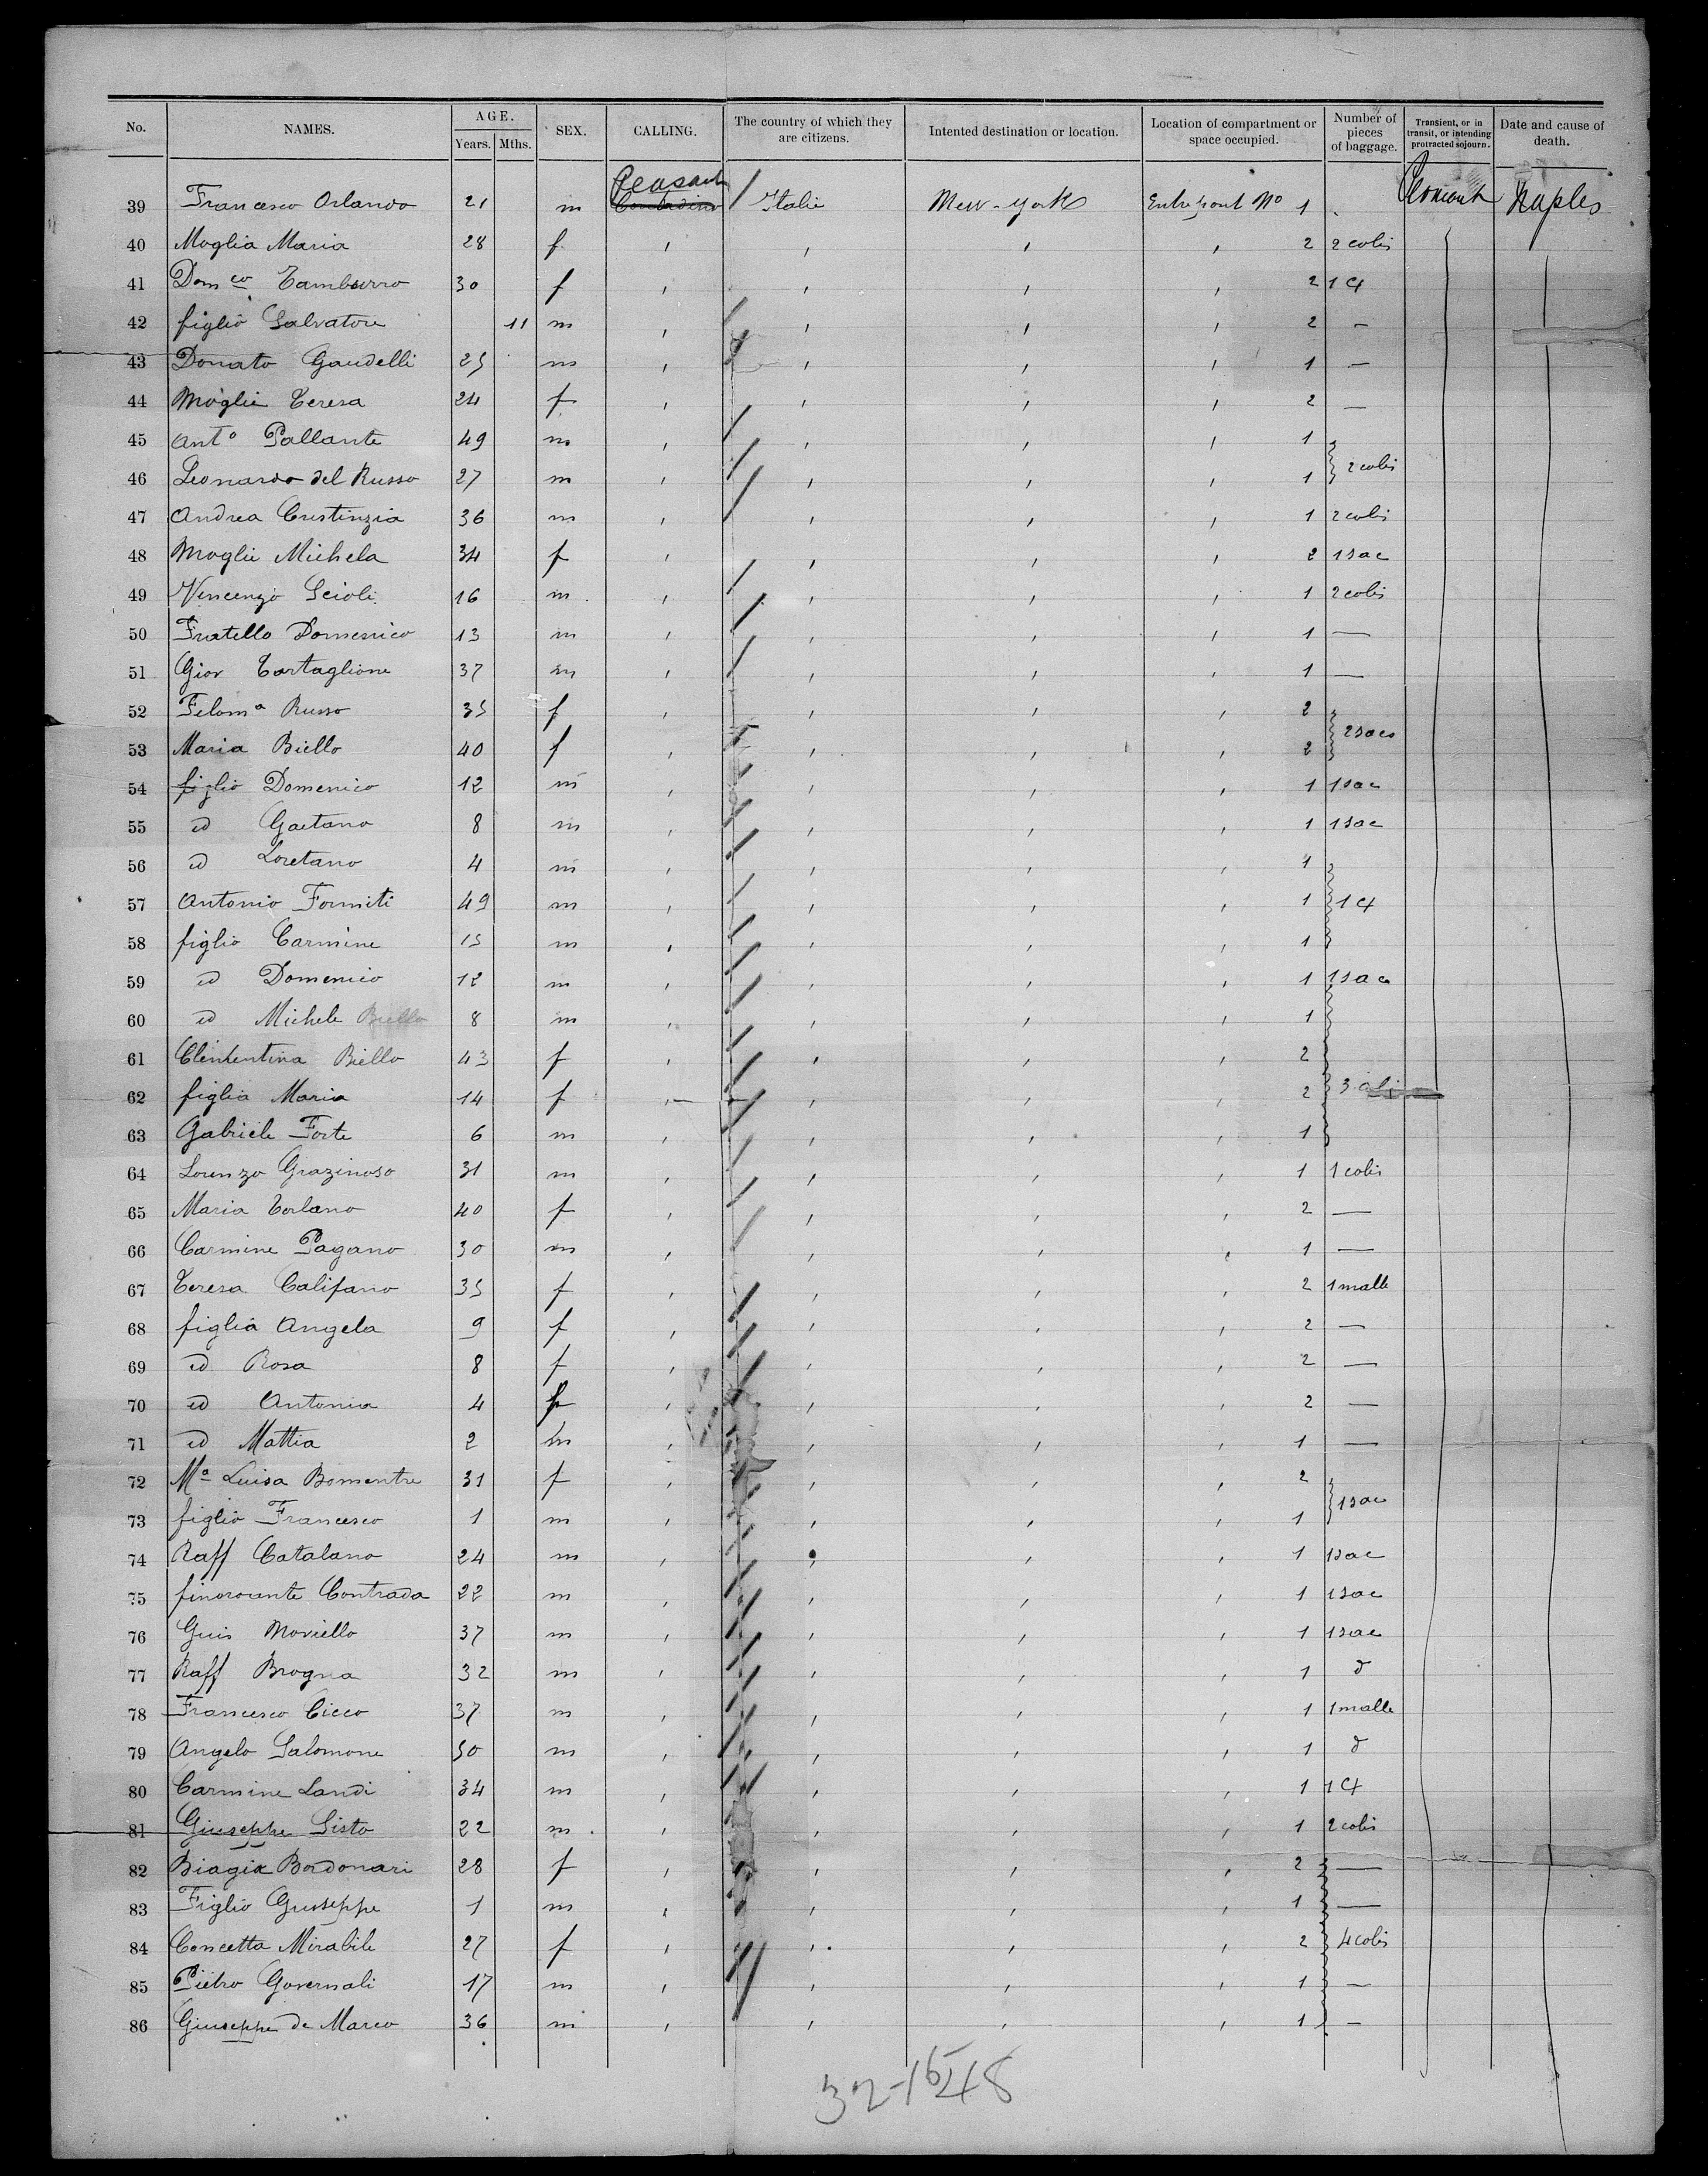 No. NAMES. AGE. Years. Mths. SEX. CALLING. The country of which they are citizens. Intented destination or location. Location of compartment or space occupied. Number of pieces of baggage. Transient, or in transit, or intending protracted sojourn. Date and cause of death.
39 Francesco Orlando 21 m Peasant Contadino Italie New-York Entrepont No 1 Naples
40 Moglia Maria 28 f " " " " 2 2 colis
41 Domco Tamburro 30 f " " " " 2 1 Ct
42 figlio Salvatore 11 m " " " " 2 —
43 Donato Gaudelli 25 m " " " " 1 —
44 Moglie Teresa 24 f " " " " 2 —
45 Anto Pallante 49 m " " " " 1
46 Leonardo del Russo 27 m " " " " 1 2 colis
47 Andrea Cristinzia 36 m " " " " 1 2 colis
48 Moglie Michela 34 f " " " " 2 1 sac
49 Vincenzo Scioli 16 m " " " " 1 2 colis
50 Fratello Domenico 13 m " " " " 1 —
51 Giov Tartaglione 37 m " " " " 1 —
52 Feloma Russo 35 f " " " " 2
53 Maria Biello 40 f " " " " 2 2 sacs
54 figlio Domenico 12 m " " " " 1 1 sac
55 id Gaetano 8 m " " " " 1 1 sac
56 id Loretano 4 m " " " " 1
57 Antonio Formiti 49 m " " " " 1 1 Ct
58 figlio Carmine 15 m " " " " 1
59 id Domenico 12 m " " " " 1 1 sac
60 id Michele Biello 8 m " " " " 1
61 Clementina Biello 43 f " " " " 2
62 figlia Maria 14 f " " " " 2 3
63 Gabriele Forte 6 m " " " " 1
64 Lorenzo Grazinoso 31 m " " " " 1 1 colis
65 Maria Torlano 40 f " " " " 2 —
66 Carmine Pagano 30 m " " " " 1 —
67 Teresa Califano 35 f " " " " 2 1 malle
68 figlia Angela 9 f " " " " 2 —
69 id Rosa 8 f " " " " 2 —
70 id Antonia 4 f " " " " 2 —
71 id Mattia 2 m " " " " 1 —
72 Ma Luisa Bomentre 31 f " " " " 2
73 figlio Francesco 1 m " " " " 1 1 sac
74 Raff Catalano 24 m " " " " 1 1 sac
75 finorocante Contrada 22 m " " " " 1 1 sac
76 Guis Moriello 37 m " " " " 1 1 sac
77 Raff Brogna 32 m " " " " 1 d
78 Francesco Cicco 37 m " " " " 1 1 malle
79 Angelo Salomone 50 m " " " " 1 d
80 Carmine Landi 34 m " " " " 1 1 Ct
81 Giuseppe Sisto 22 m " " " " 1 2 colis
82 Biagia Bordonari 28 f " " " " 2 —
83 Figlio Giuseppe 1 m " " " " 1 —
84 Concetta Mirabile 27 f " " " " 2 4 colis
85 Pietro Governali 17 m " " " " 1 —
86 Giuseppe de Marco 36 m " " " " 1 —